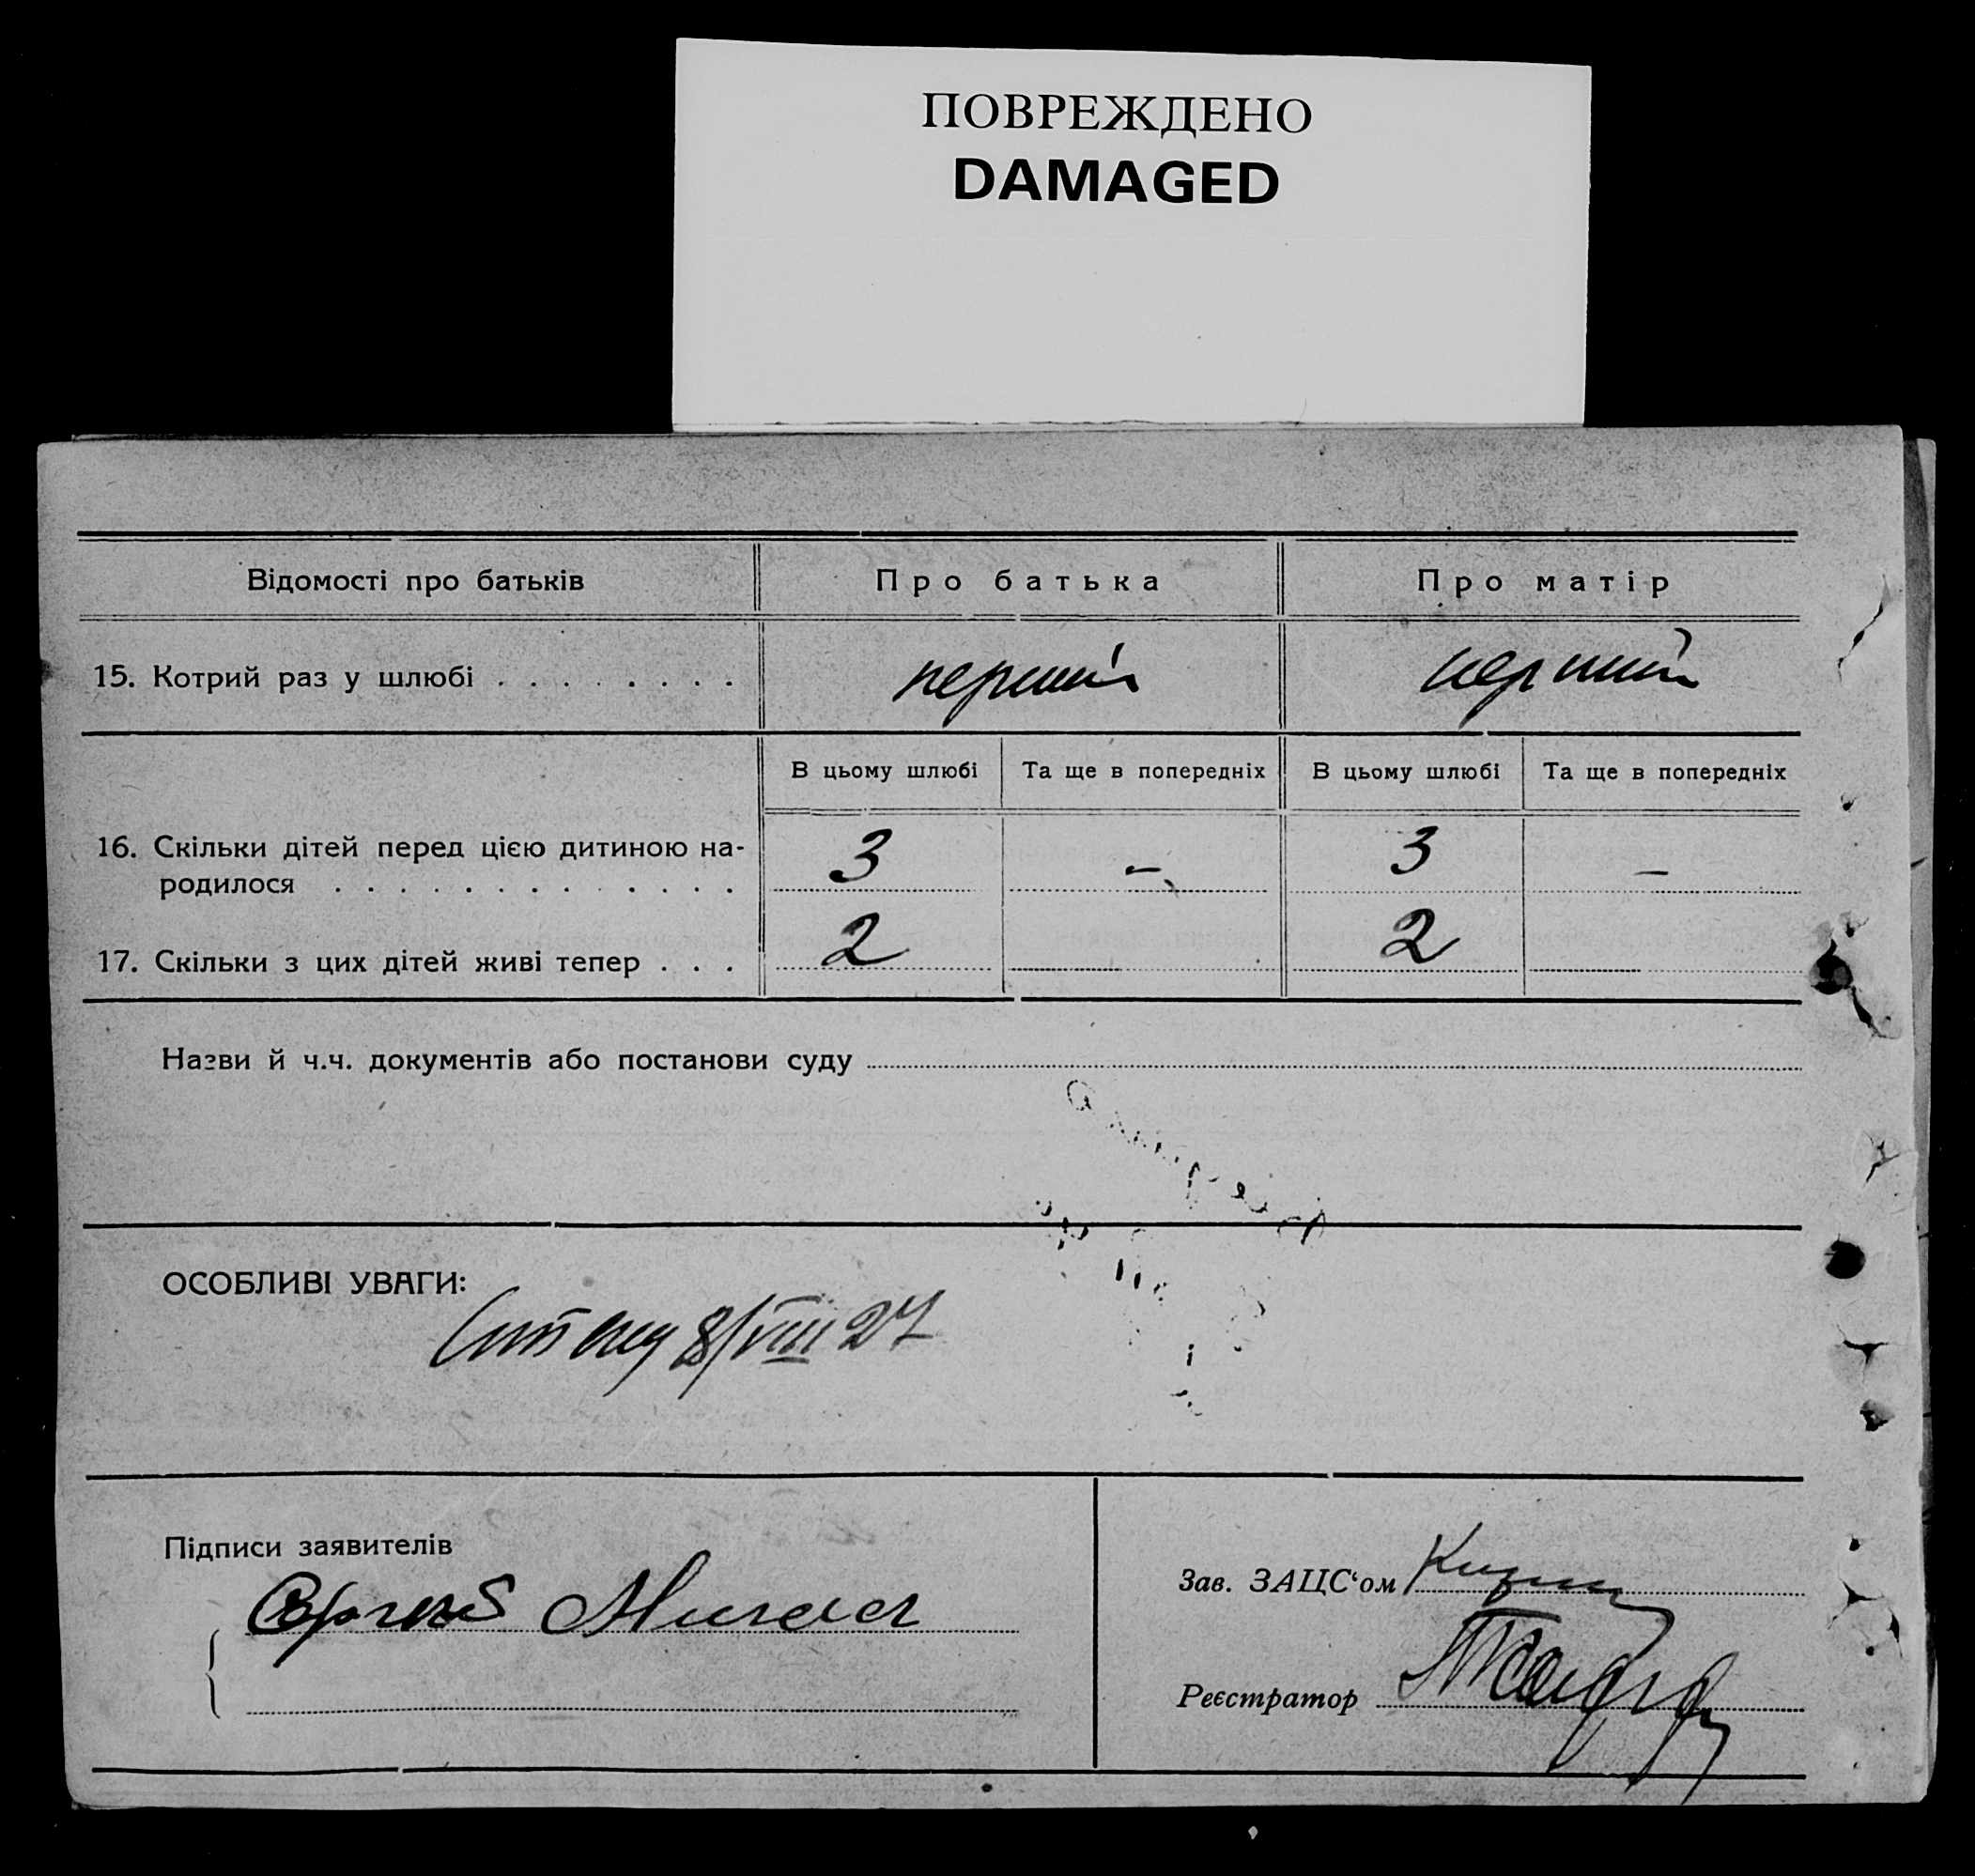 ПОВРЕЖДЕНО
DAMAGED
Відомості про батьків Про батька Про матір
15. Котрий раз у шлюбі . . . . . . . . перший перший
В цьому шлюбі Та ще в попередніх В цьому шлюбі Та ще в попередніх
16. Скільки дітей перед цією дитиною на-
родилося . . . . . . . . . . . . 3 – 3 –
17. Скільки з цих дітей живі тепер . . . 2 2
Назви й ч.ч. документів або постанови суду
ОСОБЛИВІ УВАГИ:
8/VIII 27
Підписи заявителів
Зав. ЗАЦС‘ом
Реєстратор